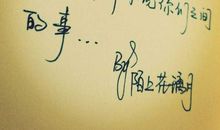 你们之间
的事...
By 陌上花满月